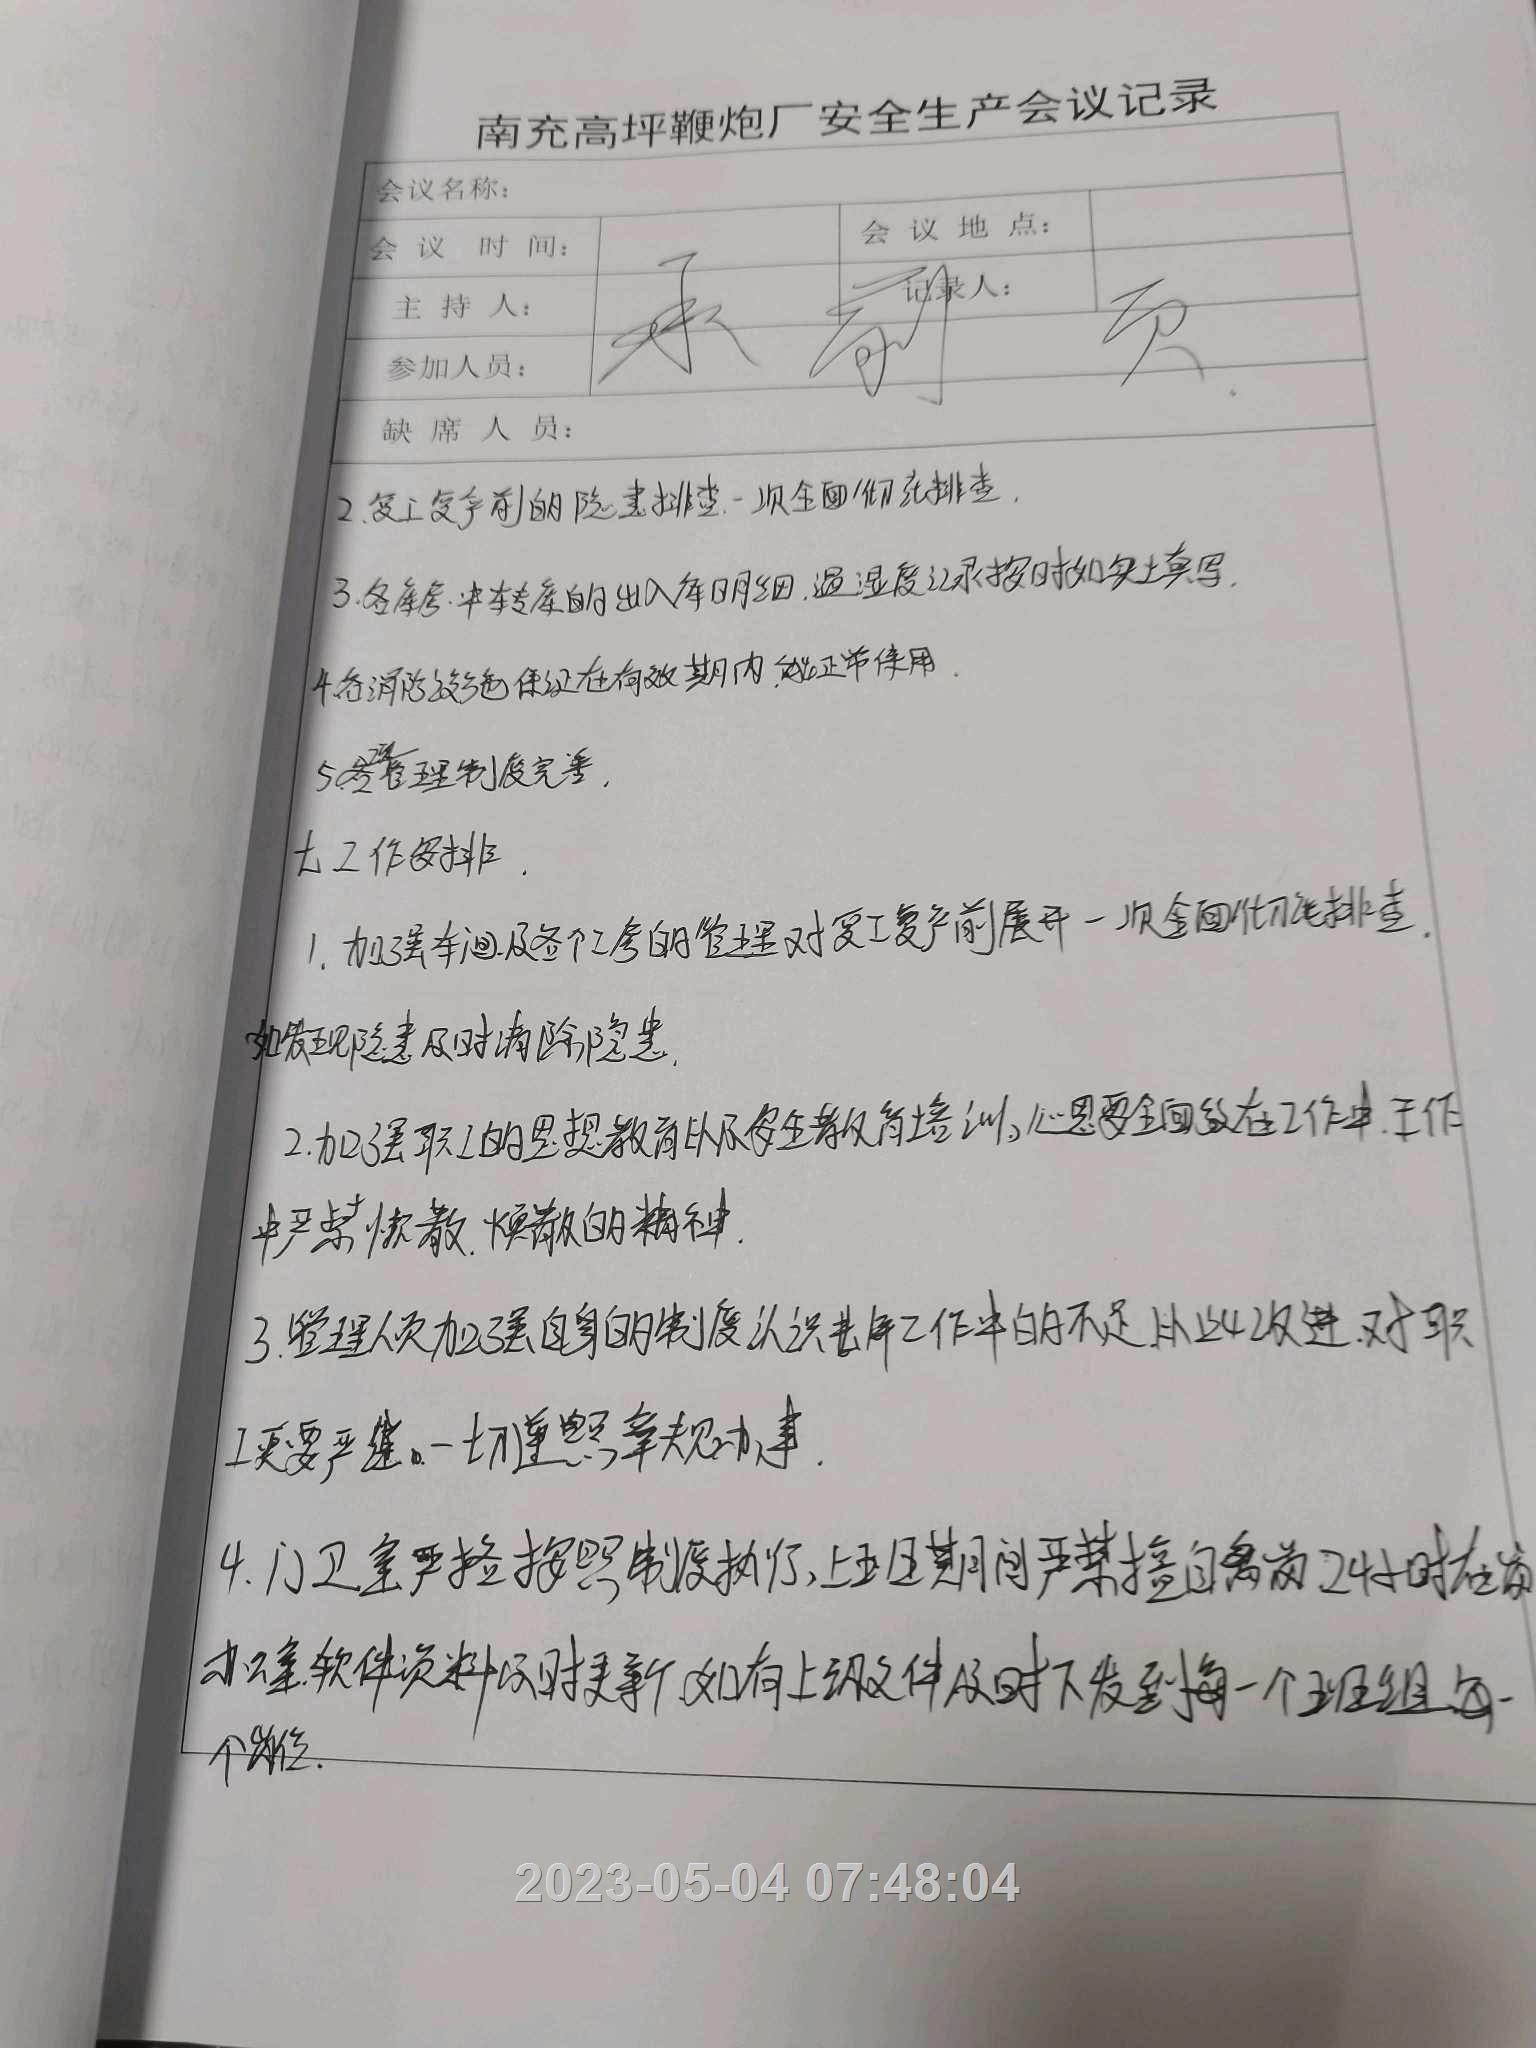 南充高坪鞭炮厂安全生产会议记录
会议名称:
会 议 时 间: 会 议 地 点:
主 持 人: 记录人:
承 前 页.
参加人员:
缺 席 人 员:
2.复工复产前的隐患排查.一次全面彻底排查.
3.各库房.中转库的出入库明细.温湿度记录按时如实填写.
4.各消防设备保证在有效期内,能正常使用.
5.各项管理制度完善.
七.工作安排.
1.加强车间及各个工房的管理对复工复产前展开一次全面彻底排查.
如发现隐患及时消除隐患.
2.加强职工的思想教育以及安全教育培训,心思要全面放在工作中.工作
中严禁懒散.烦散的精神.
3.管理人员加强自身的制度认识 工作中的不足.从此改进.对职
工更要严谨。一切遵照章规办事.
4.门卫室严格按照制度执行,上班期间严禁擅自离岗.24小时在岗
办公室.软件资料及时更新.如有上级文件及时下发到每一个班组.每一
个岗位.
2023-05-04 07:48:04